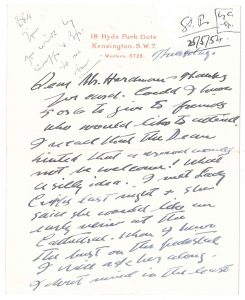 18 Hyde Park Gate
Kensington. S.W.7.
Western 5722.
25/5/54
Thursday
Dear Mr. Hardman – Thanks
for yours. Could I have
5 or 6 to give to friends
who would like to attend.
I recall that the Dean
hinted that a crowd would
not be welcome! What
a silly idea.. I met Lady
Cripps last night & she
said she would like an
early view at the
Cathedral. When I have
the bust on the pedestal
I will ask her along.
I don't mind in the least